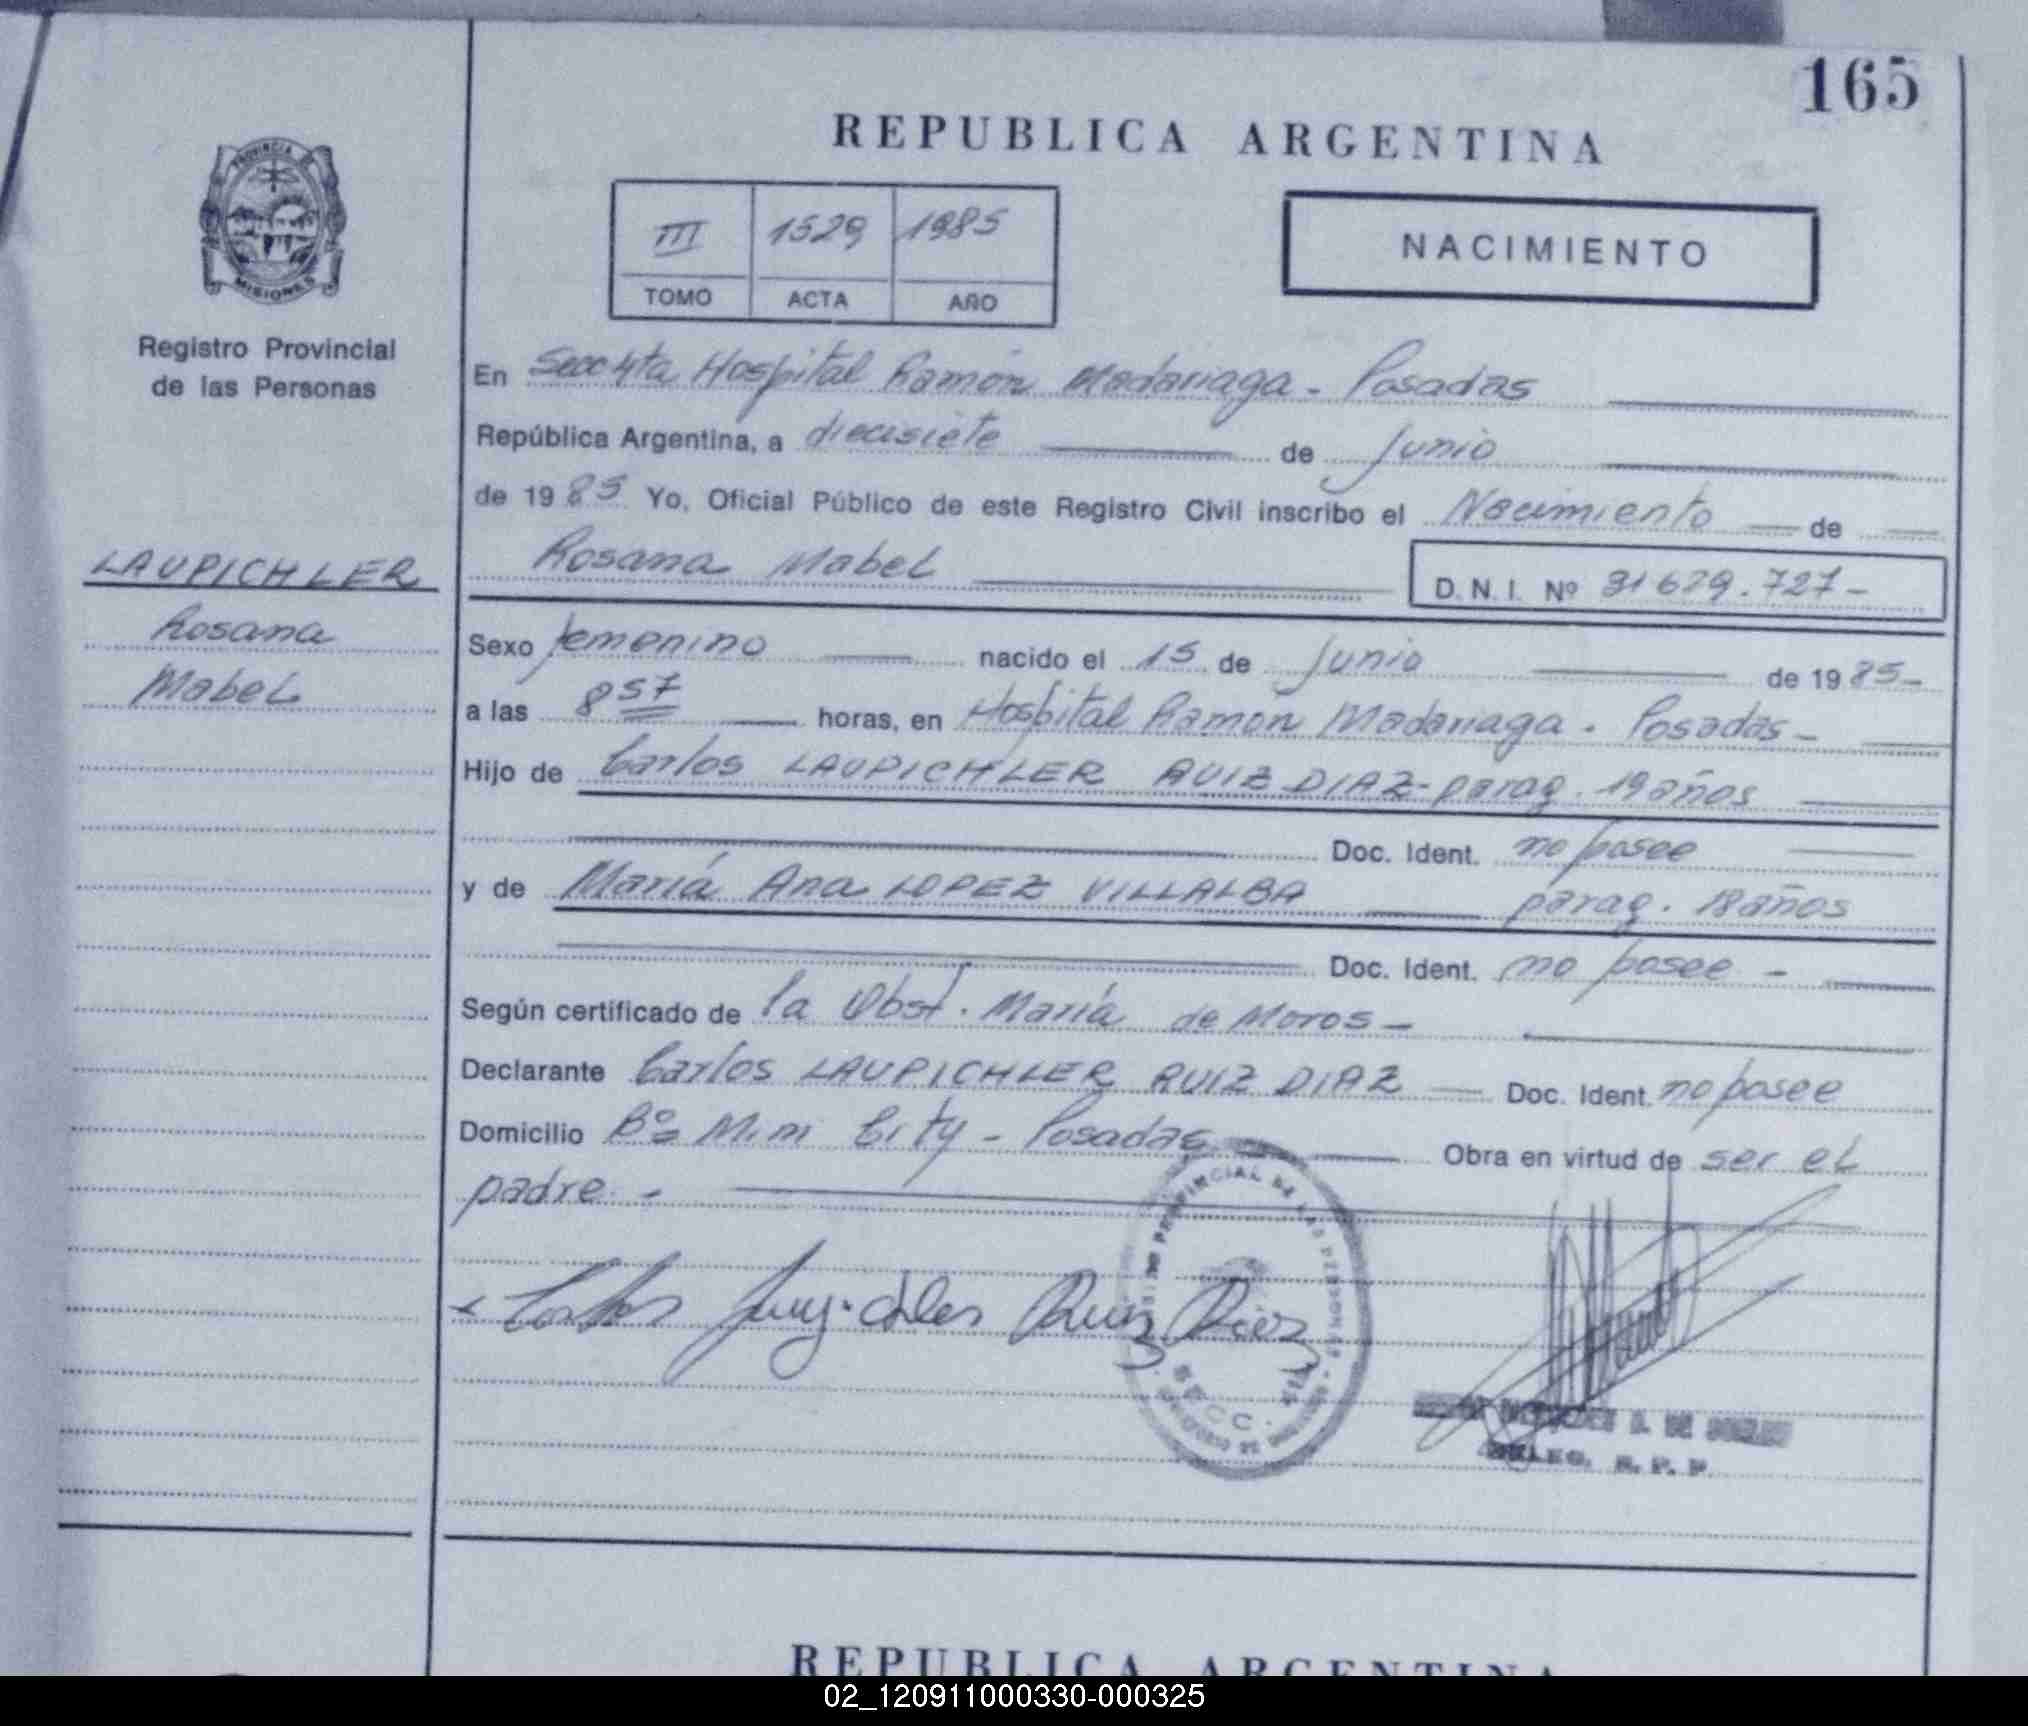 165
REPUBLICA ARGENTINA
PROVINCIA DE
MISIONES
III 1529 1985
TOMO ACTA AÑO
NACIMIENTO
Registro Provincial
de las Personas
En Secc 4ta Hospital Ramón Madariaga - Posadas
República Argentina, a diecisiete de Junio
de 1985 Yo, Oficial Público de este Registro Civil inscribo el Nacimiento de
Rosana Mabel D.N.I. Nº 31629.727-
LAUPICHLER
Rosana
Mabel
Sexo femenino nacido el 15 de Junio de 1985-
a las 8 57 horas, en Hospital Ramón Madariaga - Posadas -
Hijo de Carlos LAUPICHLER RUIZ DIAZ - parag. 19 años
Doc. Ident. no posee
y de María Ana LOPEZ VILLALBA parag. 18 años
Doc. Ident. no posee -
Según certificado de la Obst. María de Moros -
Declarante Carlos LAUPICHLER RUIZ DIAZ Doc. Ident. no posee
Domicilio Bº Mini City - Posadas Obra en virtud de ser el
padre -
Carlos Ruiz Diaz
PROVINCIAL DE LAS PERSONAS
SECC.
DELEG. R. P. P.
REPUBLICA ARGENTINA
02_120911000330-000325